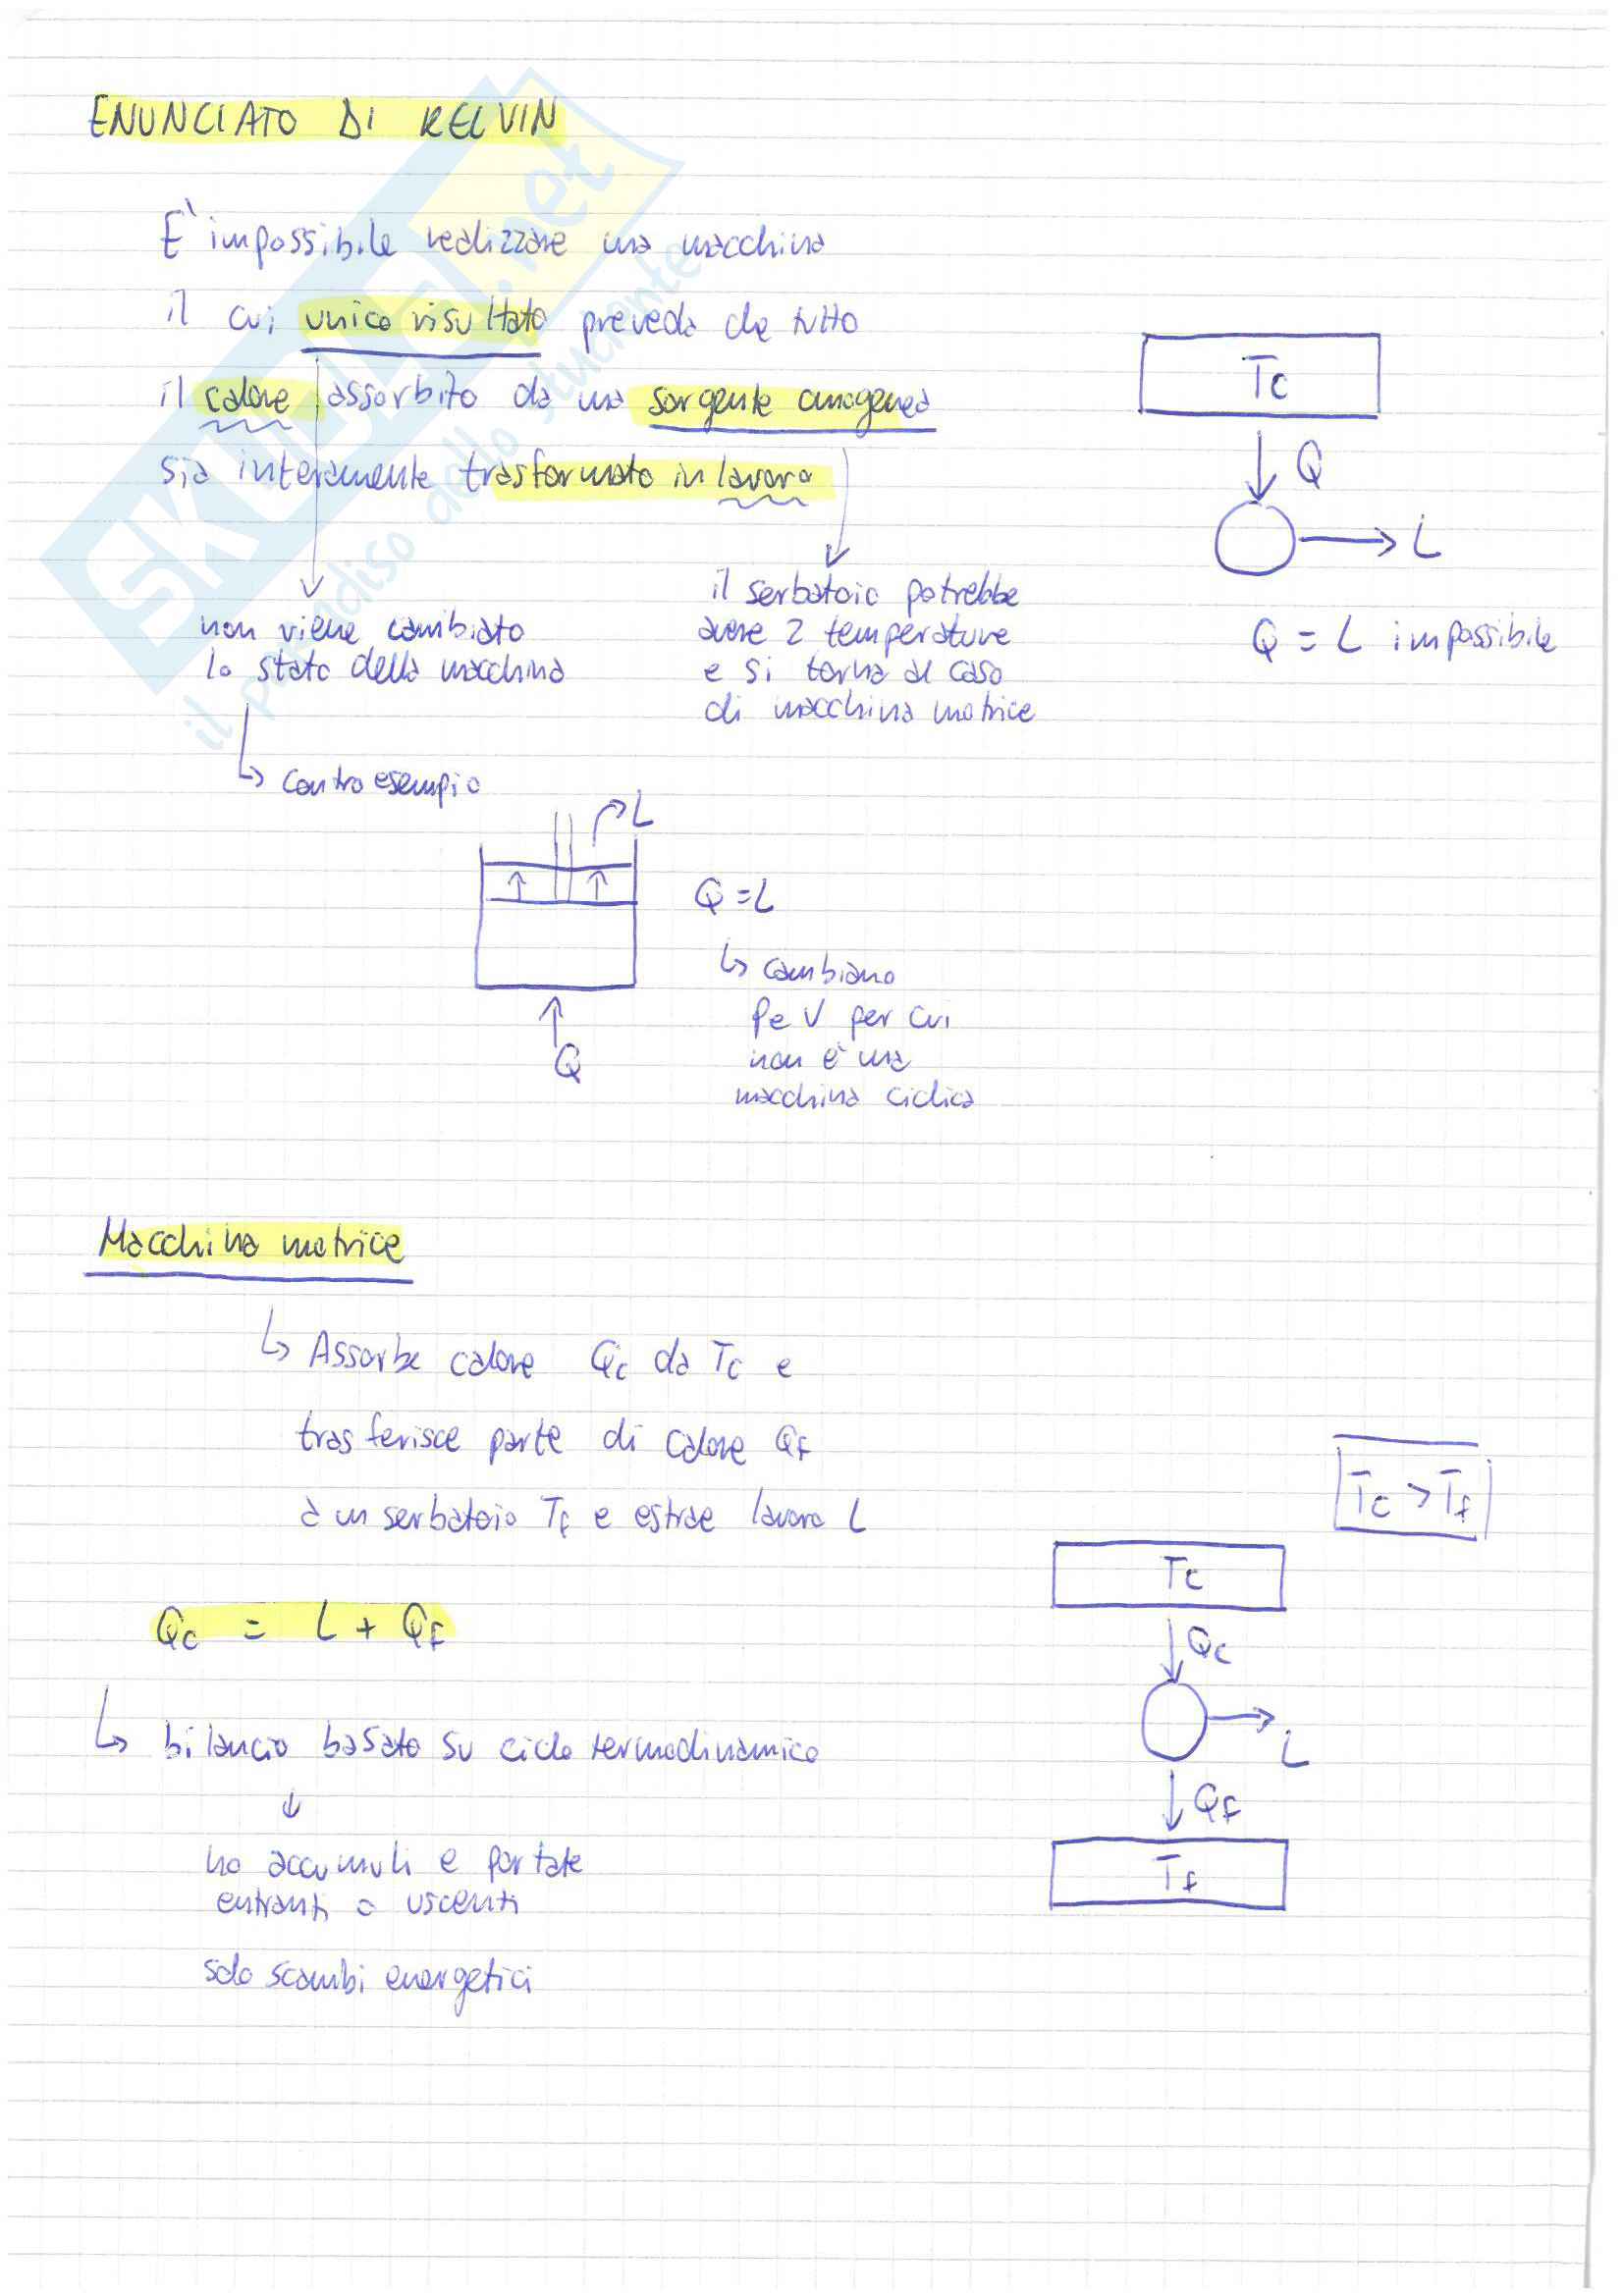 ENUNCIATO DI KELVIN
E' impossibile realizzare una macchina
il cui unico risultato preveda che tutto
il calore assorbito da una sorgente omogenea
sia interamente trasformato in lavoro
Tc
Q
L
Q = L impossibile
non viene cambiato
lo stato della macchina
il serbatoio potrebbe
avere 2 temperature
e si torna al caso
di macchina motrice
controesempio
L
Q
Q = L
cambiano
P e V per cui
non è una
macchina ciclica
Macchina motrice
Assorbe calore Qc da Tc e
trasferisce parte di calore Qf
a un serbatoio Tf e estrae lavoro L
Tc > Tf
Qc = L + Qf
bilancio basato su ciclo termodinamico
no accumuli e portate
entranti o uscenti
solo scambi energetici
Tc
Qc
L
Qf
Tf
SKUOLA.net
il paradiso dello studente